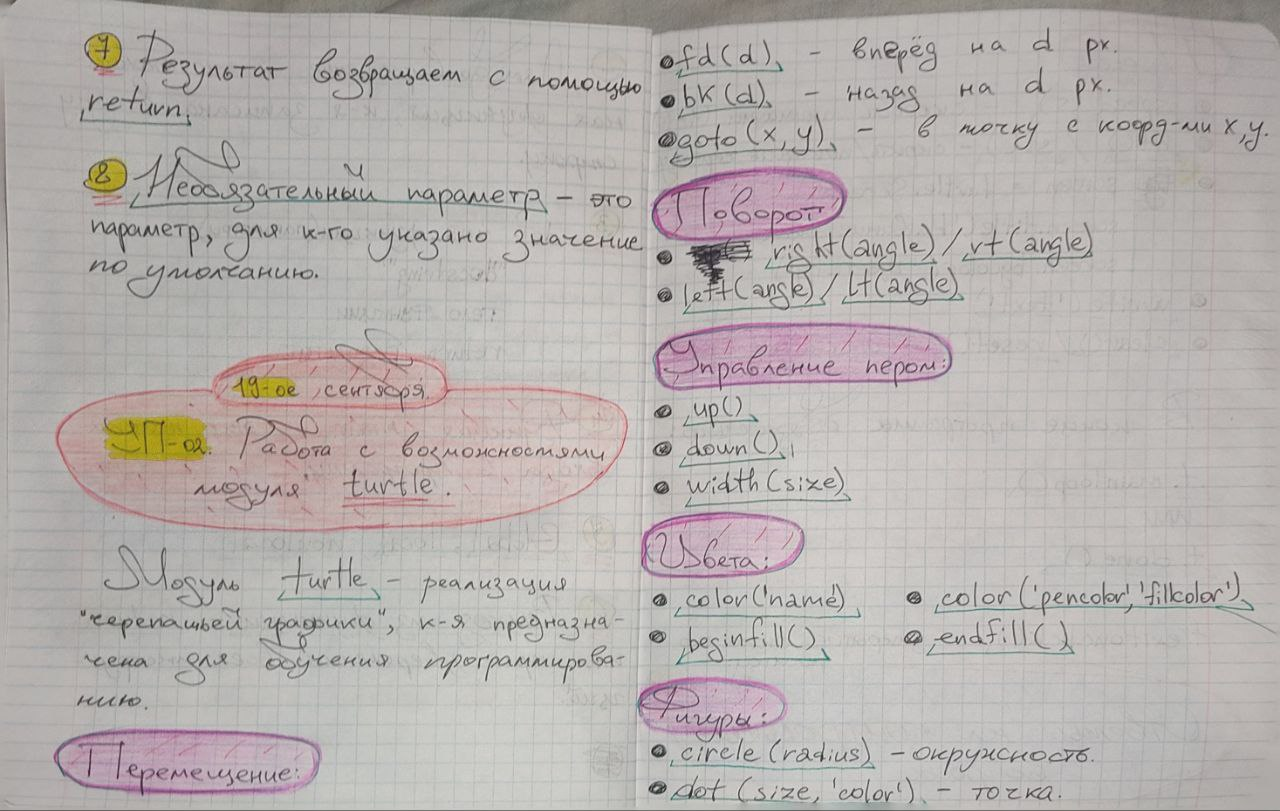 7 Результат возвращаем с помощью
return.
8 Необязательный параметр – это
параметр, для к-го указано значение
по умолчанию.
19-ое сентября.
УП-02. Работа с возможностями
модуля turtle.
Модуль turtle – реализация
"черепашьей графики", к-я предназна-
чена для обучения программирова-
нию.
Перемещение:
• fd(d) – вперёд на d px.
• bk(d) – назад на d px.
• goto(x,y) – в точку с коорд-ми x,y.
Поворот
• right(angle)/rt(angle)
• left(angle)/lt(angle)
Управление пером:
• up()
• down()
• width(size)
Цвета:
• color('name') • color('pencolor','fillcolor')
• beginfill() • endfill()
Фигуры:
• circle(radius) – окружность.
• dot(size,'color') – точка.